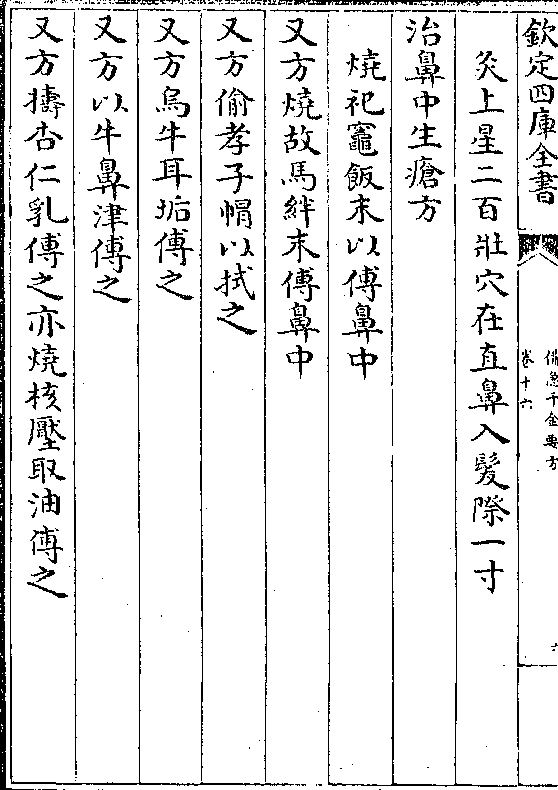 欽定四庫全書
備急千金要方
卷十六
六
灸上星二百壯穴在直鼻入髮際一寸
治鼻中生瘡方
燒祀竈飯末以傅鼻中
又方燒故馬絆末傅鼻中
又方偷孝子帽以拭之
又方烏牛耳垢傅之
又方以牛鼻津傅之
又方擣杏仁乳傅之亦燒核壓取油傅之